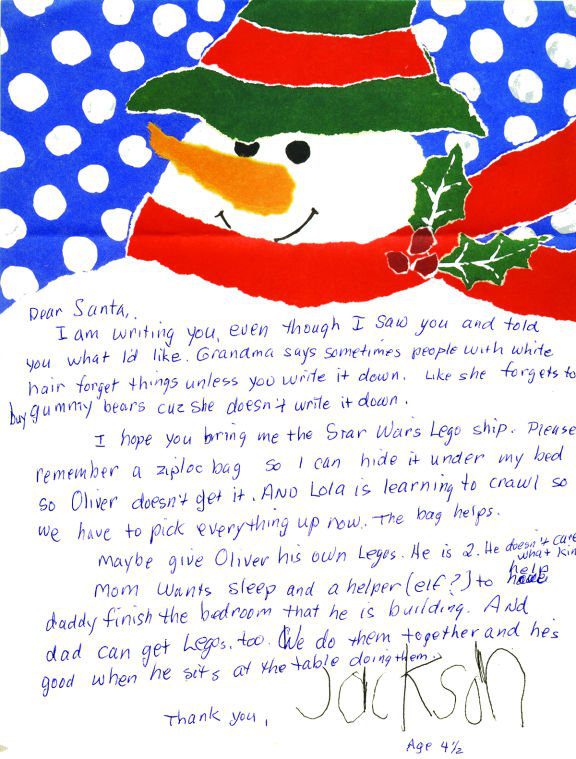 Dear Santa,
I am writing you, even though I saw you and told
you what I'd like. Grandma says sometimes people with white
hair forget things unless you write it down. Like she forgets to
buy gummy bears cuz she doesn't write it down.
I hope you bring me the Star Wars Lego ship. Please
remember a ziploc bag so I can hide it under my bed
so Oliver doesn't get it. AND Lola is learning to crawl so
we have to pick everything up now. The bag helps.
Maybe give Oliver his own Legos. He is 2. He doesn't care
what kin
Mom wants sleep and a helper (elf?) to help
daddy finish the bedroom that he is building. And
dad can get Legos, too. We do them together and he's
good when he sits at the table doing them.
Thank you,
Jackson
Age 4½